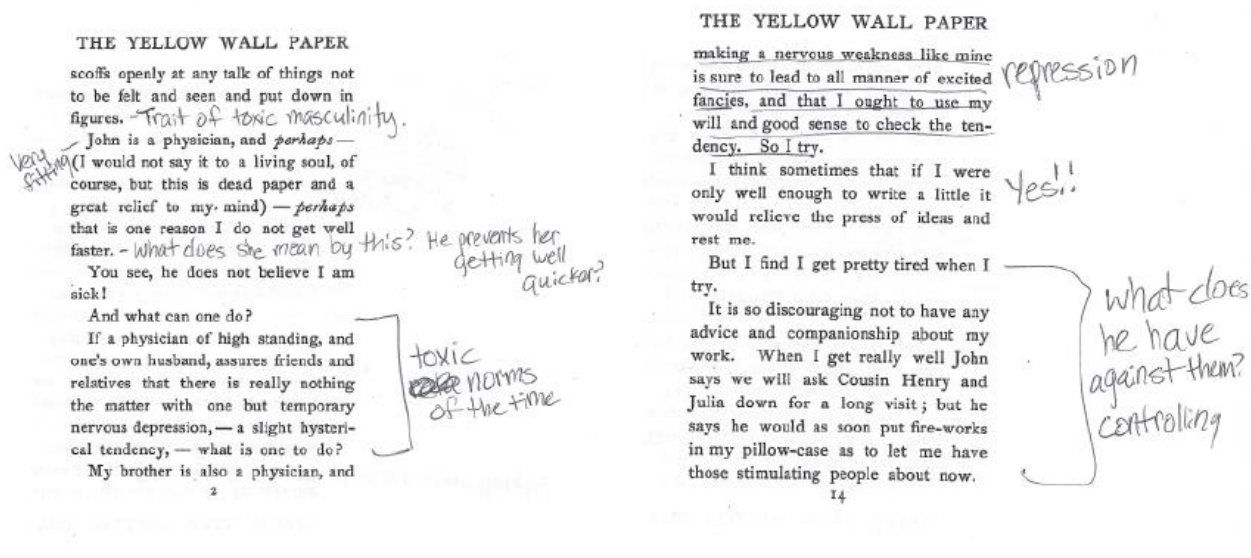 THE YELLOW WALL PAPER
scoffs openly at any talk of things not
to be felt and seen and put down in
figures. - Trait of toxic masculinity.
John is a physician, and perhaps —
Very fitting
(I would not say it to a living soul, of
course, but this is dead paper and a
great relief to my mind) — perhaps
that is one reason I do not get well
faster. - What does she mean by this? He prevents her
getting well
quicker?
You see, he does not believe I am
sick!
And what can one do?
If a physician of high standing, and
one's own husband, assures friends and
relatives that there is really nothing
the matter with one but temporary
nervous depression, — a slight hysteri-
cal tendency, — what is one to do?
My brother is also a physician, and
2
toxic
norms
of the time
THE YELLOW WALL PAPER
making a nervous weakness like mine
is sure to lead to all manner of excited
fancies, and that I ought to use my
will and good sense to check the ten-
dency. So I try.
repression
I think sometimes that if I were
only well enough to write a little it
would relieve the press of ideas and
rest me.
Yes!!
But I find I get pretty tired when I
try.
It is so discouraging not to have any
advice and companionship about my
work. When I get really well John
says we will ask Cousin Henry and
Julia down for a long visit; but he
says he would as soon put fire-works
in my pillow-case as to let me have
those stimulating people about now.
14
what does
he have
against them?
controlling